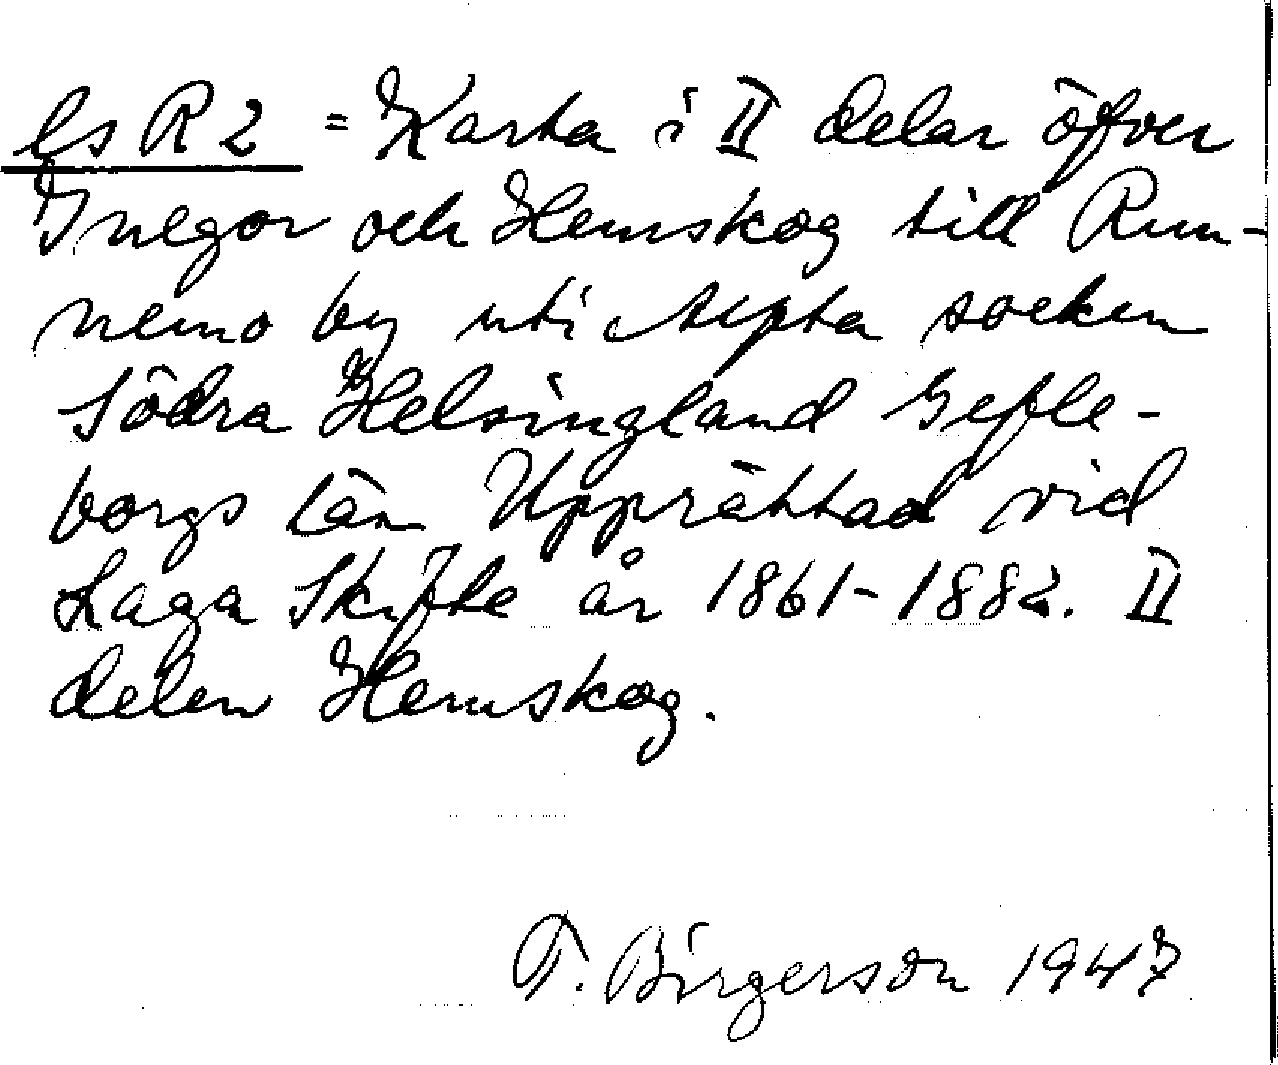 ls R 2 = Karta i II delar öfver
Inegor och Hemskog till Run-
nemo by uti Alfta socken
Södra Helsingland Gefle-
borgs län Upprättad vid
Laga Skifte år 1861-1882. II
delen Hemskog.
T. Birgerson 1947